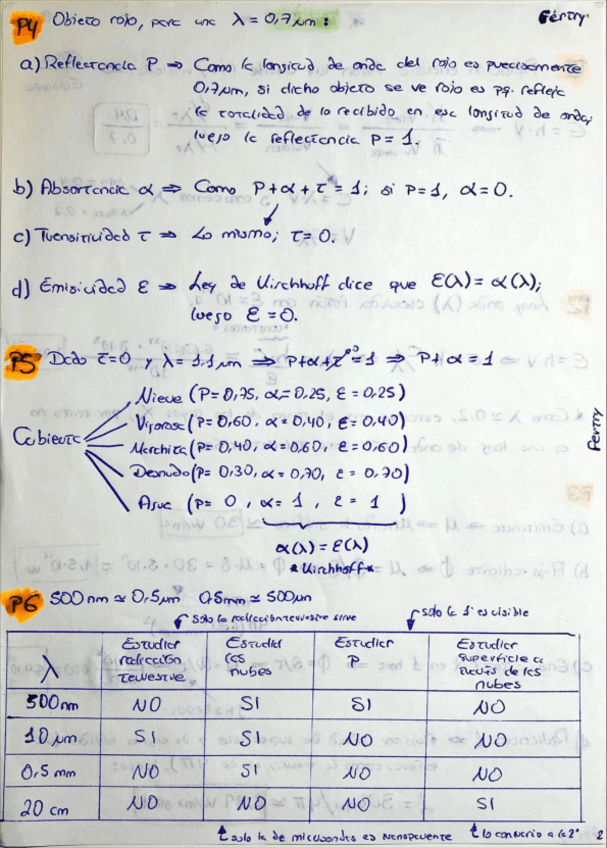 P4 Objeto rojo, para una λ = 0,7 μm: Fértry
a) Reflectancia P ⇒ Como la longitud de onda del rojo es precisamente
0,7 μm, si dicho objeto se ve rojo es pq. refleja
la totalidad de lo recibido en esa longitud de onda;
luego la reflectancia P = 1.
b) Absortancia α ⇒ Como P + α + τ = 1; si P=1, α=0.
c) Transitividad τ ⇒ Lo mismo; τ = 0.
d) Emisividad ε ⇒ Ley de Kirchhoff dice que ε(λ) = α(λ);
luego ε = 0.
P5 Dado τ=0 y λ = 1.1 μm ⇒ P+α+τ=1 ⇒ P+α=1
0
Nieve (P=0,75, α=0.25, ε=0.25)
Vigorosa (P=0,60, α=0,40, ε=0,40)
Cubierta
Marchita (P=0,40, α=0,60, ε=0,60)
Desnudo (P= 0,30, α=0,70, ε= 0,70)
Agua (P= 0, α= 1, ε= 1)
Fértry
α(λ) = ε(λ)
*Kirchhoff*
P6 500 nm ≃ 0,5 μm 0,5mm ≃ 500μm
solo la radiación terrestre sirve
solo la 1ª es visible
λ Estudiar radiación terrestre Estudiar las nubes Estudiar P Estudiar superficie a través de las nubes
500 nm NO SI SI NO
10 μm SI SI NO NO
0,5 mm NO SI NO NO
20 cm NO NO NO SI
solo la de microondas es transparente lo contrario a la 2ª 2